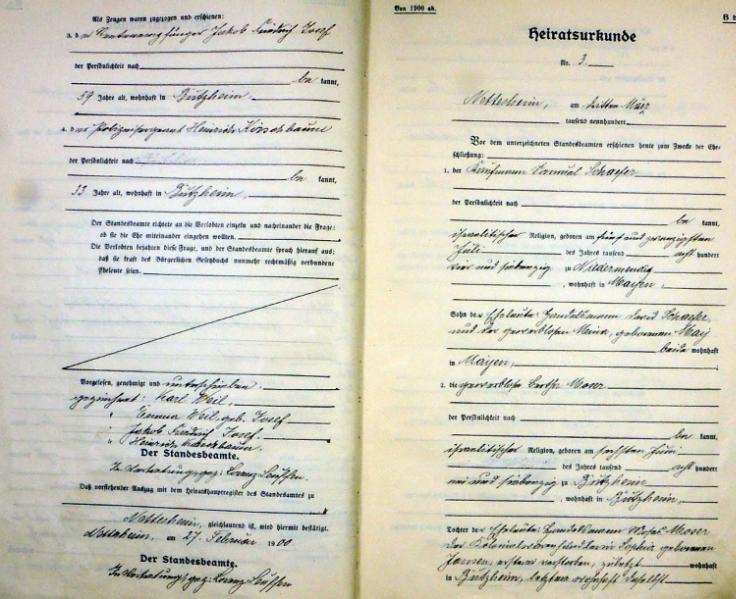 Als Zeugen waren zugezogen und erschienen:
3. der Rentnerempfänger Jakob Friedrich Josef
der Persönlichkeit nach
be kannt,
59 Jahre alt, wohnhaft in Bützheim.
4. der Polizeisergeant Heinrich Kirschbaum
der Persönlichkeit nach
be kannt,
33 Jahre alt, wohnhaft in Bützheim.
Der Standesbeamte richtete an die Verlobten einzeln und nacheinander die Frage:
ob sie die Ehe miteinander eingehen wollten.
Die Verlobten bejahten diese Frage, und der Standesbeamte sprach hierauf aus:
daß sie kraft des Bürgerlichen Gesetzbuchs nunmehr rechtmäßig verbundene
Eheleute seien.
Vorgelesen, genehmigt und unterschrieben.
gezeichnet: Karl Weil,
" Emma Weil, geb. Josef.
" Jakob Friedrich Josef.
" Heinrich Kirschbaum.
Der Standesbeamte.
In Vertretung: gez: Lorenz
Daß vorstehender Auszug mit dem Heiratshauptregister des Standesamtes zu
Nettesheim, gleichlautend ist, wird hiermit bestätigt.
Nettesheim, am 27. Februar 1900
Der Standesbeamte.
In Vertretung: gez: Lorenz
Von 1900 ab.
B
Heiratsurkunde
Nr. 3
Nettesheim, am dritten März
tausend neunhundert
Vor dem unterzeichneten Standesbeamten erschienen heute zum Zwecke der Ehe-
schließung:
1. der Kaufmann Samuel Schaefer
der Persönlichkeit nach
be kannt,
israelitischer Religion, geboren am fünf und zwanzigsten
Juli des Jahres tausend acht hundert
vier und siebenzig zu Niedermendig
, wohnhaft in Mayen,
Sohn der Eheleute: Handelsmann David Schaefer
und der gewerblosen Meina, geborenen May
beide wohnhaft
in Mayen,
2. die gewerblose Bertha Moser
der Persönlichkeit nach
be kannt,
israelitischer Religion, geboren am sechsten Juni
des Jahres tausend acht hundert
und siebenzig zu Bützheim
, wohnhaft in Bützheim,
Tochter der Eheleute: Handelsmann Moser
der Kolonialwarenhändlerin Sophia geborenen
ersterer verstorben, zuletzt wohnhaft
in Bützheim, letztere wohnhaft daselbst